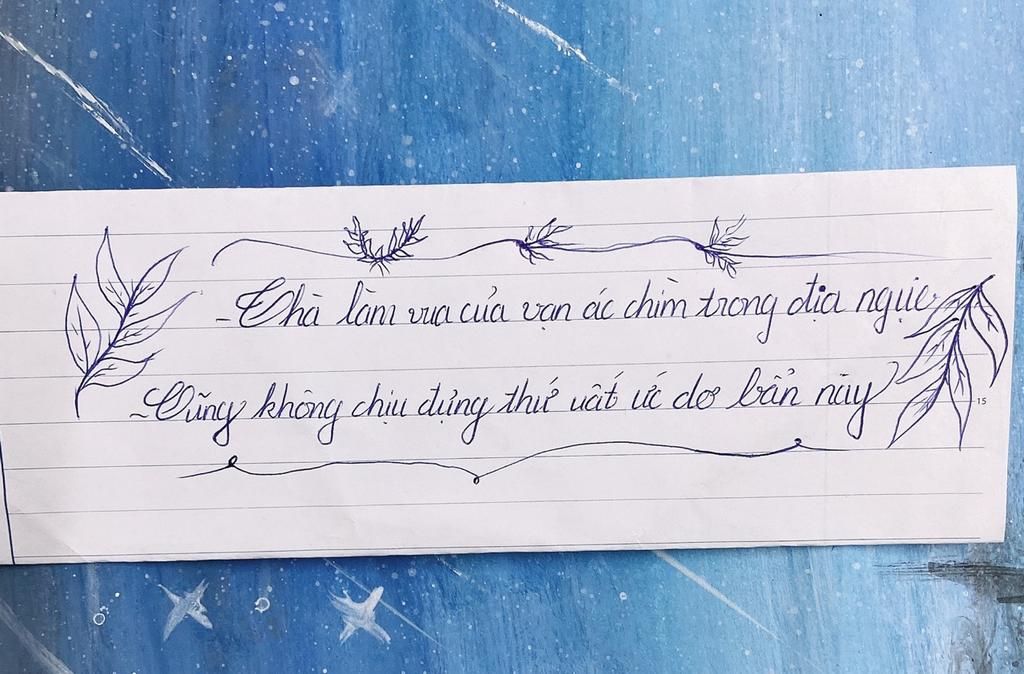 - Thà làm vua của vạn ác chìm trong địa ngục
- Cũng không chịu đựng thứ uất ức dơ bẩn này
15